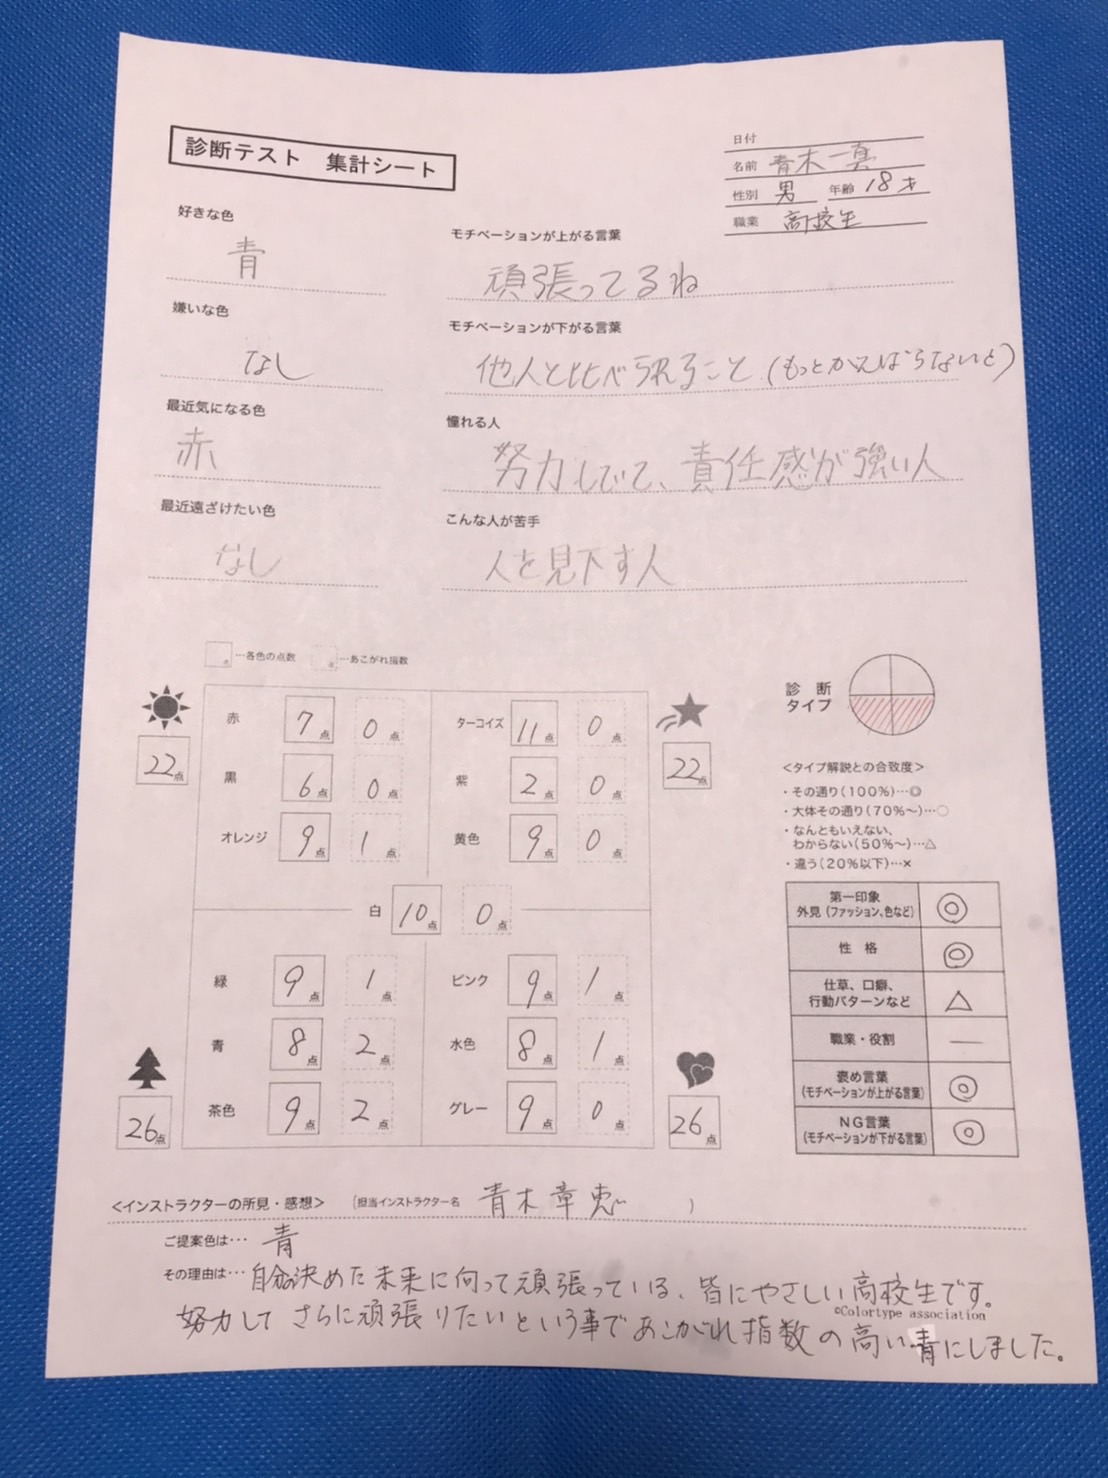 診断テスト 集計シート
日付
名前 青木一真
性別 男 年齢 18才
職業 高校生
好きな色
青
嫌いな色
なし
最近気になる色
赤
最近遠ざけたい色
なし
モチベーションが上がる言葉
頑張ってるね
モチベーションが下がる言葉
他人と比べられること(もっとがんばらないと)
憧れる人
努力してて、責任感が強い人
こんな人が苦手
人を見下す人
点…各色の点数 点…あこがれ指数
22点
赤 7点 0点
黒 6点 0点
オレンジ 9点 1点
ターコイズ 11点 0点
紫 2点 0点
黄色 9点 0点
22点
白 10点 0点
緑 9点 1点
青 8点 2点
茶色 9点 2点
26点
ピンク 9点 1点
水色 8点 1点
グレー 9点 0点
26点
診断
タイプ
<タイプ解説との合致度>
・その通り(100%)…◎
・大体その通り(70%〜)…○
・なんともいえない、
わからない(50%〜)…△
・違う(20%以下)…×
第一印象
外見(ファッション、色など) ◎
性格 ◎
仕草、口癖、
行動パターンなど △
職業・役割 —
褒め言葉
(モチベーションが上がる言葉) ◎
NG言葉
(モチベーションが下がる言葉) ◎
<インストラクターの所見・感想> (担当インストラクター名 青木章恵 )
ご提案色は… 青
その理由は… 自分の決めた未来に向って頑張っている、皆にやさしい高校生です。
©Colortype association
努力して さらに頑張りたいという事で あこがれ指数の高い青にしました。